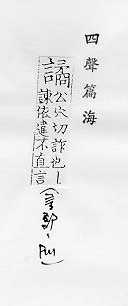 四聲篇海
譎
公穴切詐也丨
諫依違不直言